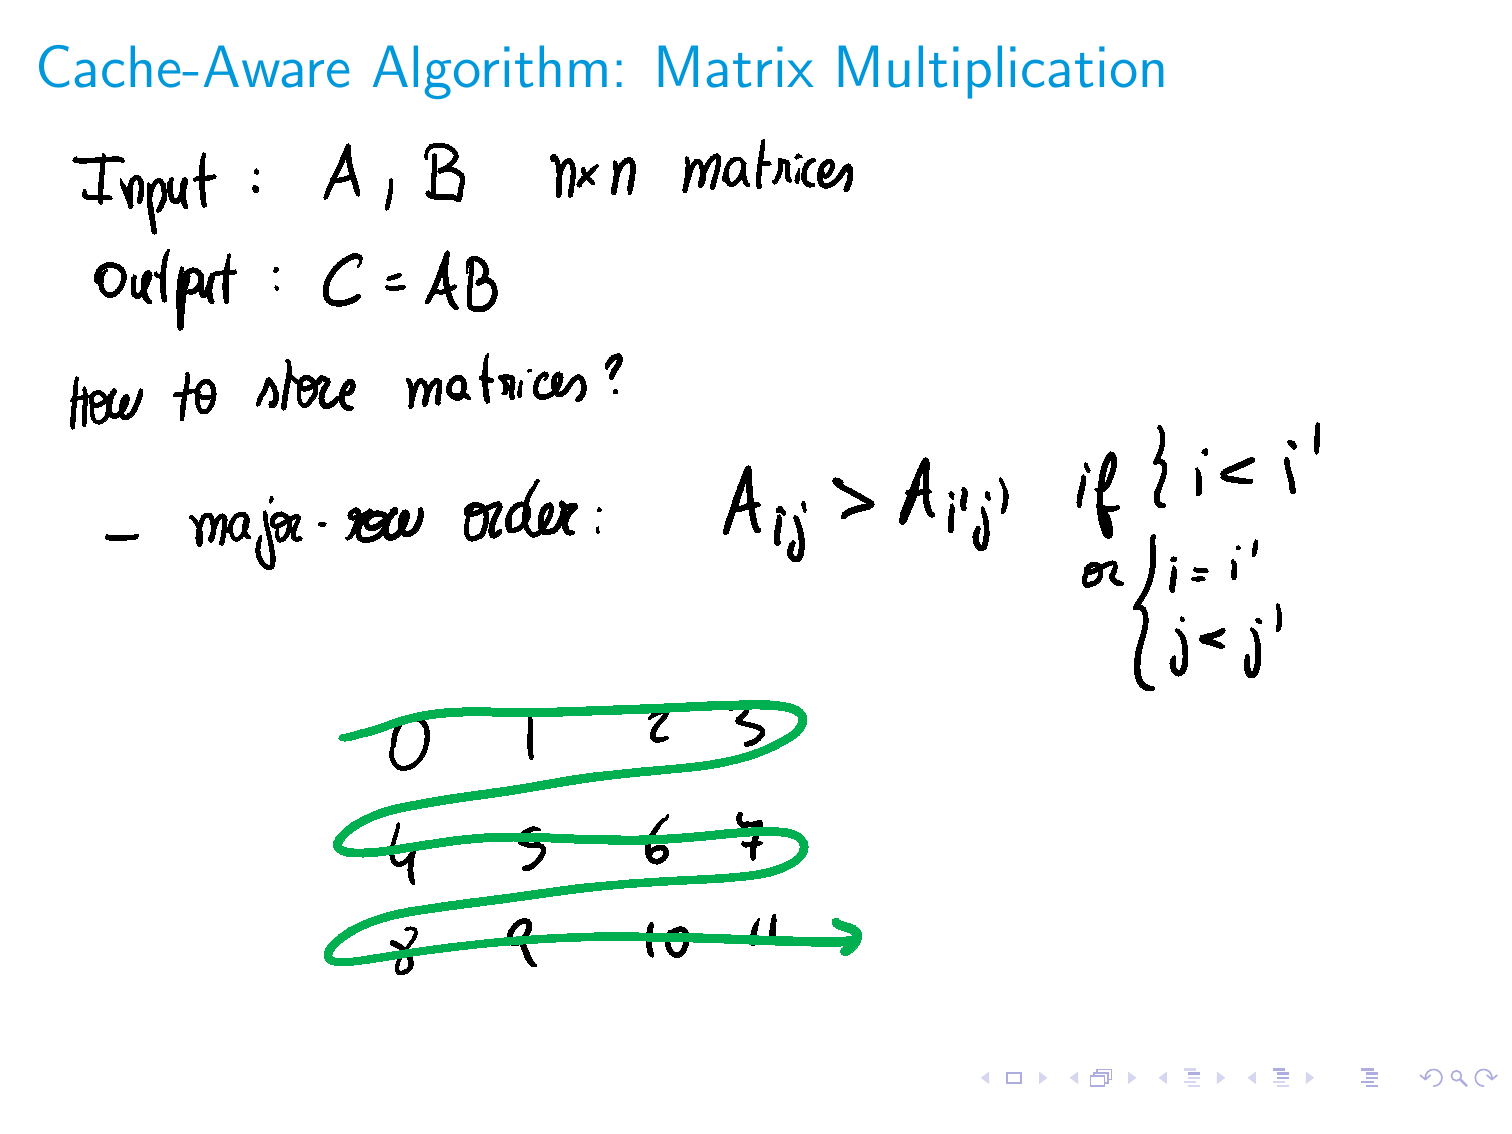 Cache-Aware Algorithm: Matrix Multiplication
Input : A , B n×n matrices
Output : C = AB
How to store matrices?
- major-row order: A_{ij} > A_{i'j'} if { i < i'
or { i = i'
j < j'
0 1 2 3
4 5 6 7
8 9 10 11